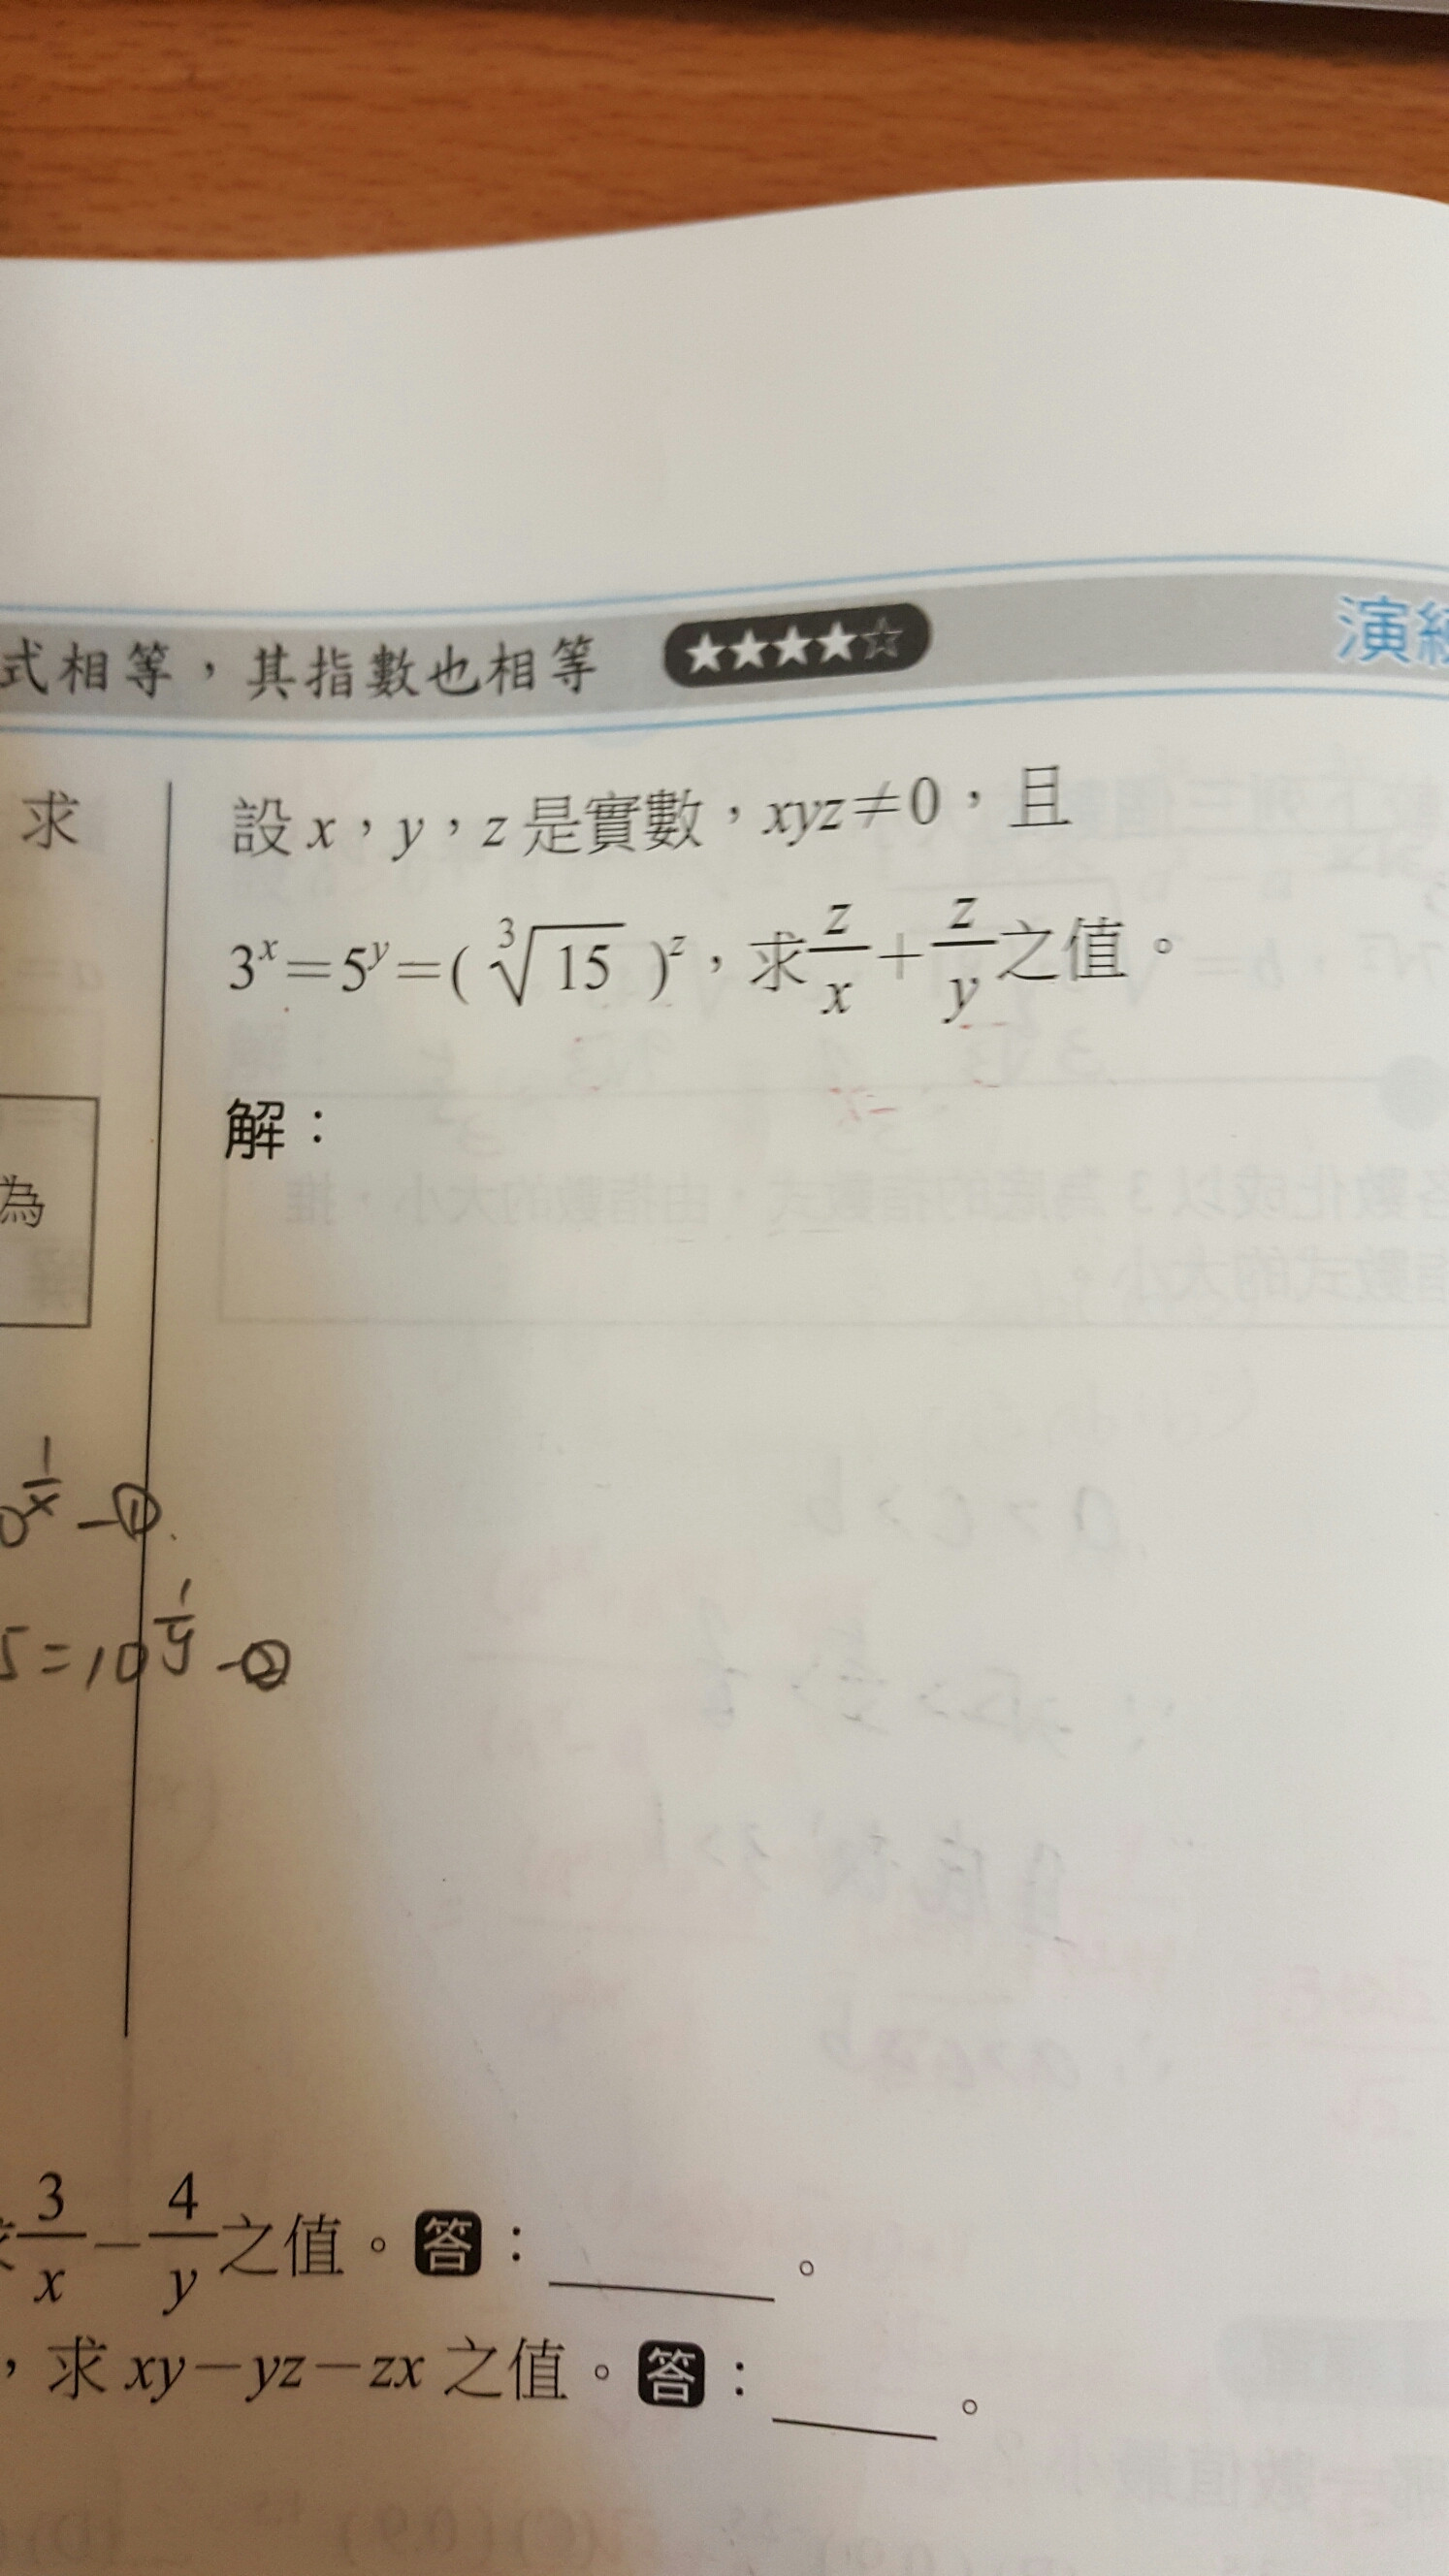 式相等，其指數也相等 ★★★★☆ 演
求
設 x，y，z 是實數，xyz≠0，且
3^x=5^y=(∛15)^z，求 z/x + z/y 之值。
解：
為
^(1/x) —①
5=10^(1/y) —②
3/x − 4/y 之值。答：______。
，求 xy−yz−zx 之值。答：______。